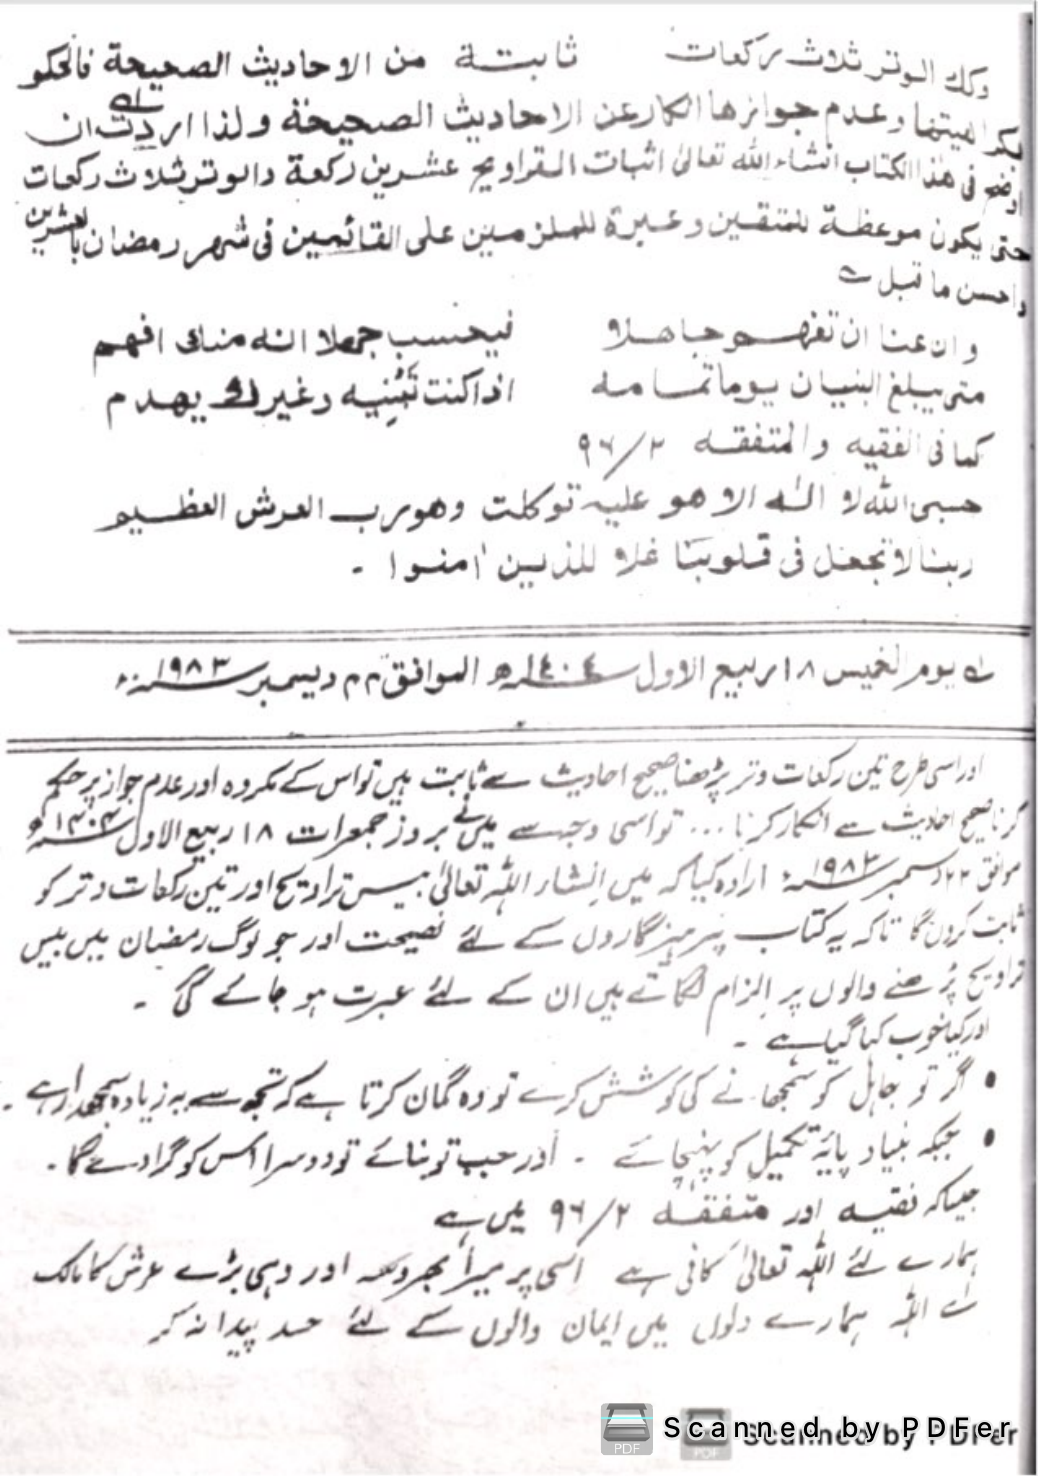 وكذ الوتر ثلاث ركعات ثابتة من الاحاديث الصحيحة فالحكو
بكراهيتها وعدم جوازها انكار عن الاحاديث الصحيحة ولذا اردت ان
اوضح فی هذا الكتاب انشاء الله تعالىٰ اثبات التراويح عشرين ركعة والوتر ثلاث ركعات
حتى يكون موعظة للمتقين وعبرة للملزمين على القائمين فی شهر رمضان بالعشرين
واحسن ما قيل
وان عنا ان تفهم جاهلا فيحسب جهلا انه منك افهم
متى يبلغ البنيان يوما تمامه اذا كنت تبنيه وغيرك يهدم
كما فی الفقيه والمتفقه ٢/٩٦
حسبی الله لا اله الا هو عليه توكلت وهو رب العرش العظيم
ربنا لا تجعل فی قلوبنا غلا للذين اٰمنوا ۔
يوم الخميس ١٨ ربيع الاول ١٤٠٤ھ الموافق ٢٢ ديسمبر ١٩٨٣ء
اور اسی طرح تین رکعات وتر پڑھنا صحیح احادیث سے ثابت ہیں تو اس کے مکروہ اور عدم جواز پر حکم
کرنا صحیح احادیث سے انکار کرنا ... تو اسی وجہ سے میں نے بروز جمعرات ١٨ ربیع الاول ١٤٠٤ھ
موافق ٢٢ دسمبر ١٩٨٣ء ارادہ کیا کہ میں انشاء اللہ تعالیٰ بیس تراویح اور تین رکعات وتر کو
ثابت کروں گا تاکہ یہ کتاب پرہیزگاروں کے لئے نصیحت اور جو لوگ رمضان میں بیس
تراویح پڑھنے والوں پر الزام لگاتے ہیں ان کے لئے عبرت ہو جائے گی ۔
اور کیا خوب کہا گیا ہے ۔
• اگر تو جاہل کو سمجھانے کی کوشش کرے تو وہ گمان کرتا ہے کہ تجھ سے یہ زیادہ سمجھدار ہے ۔
• جبکہ بنیاد پایۂ تکمیل کو پہنچائے ۔ اور جب تو بنائے تو دوسرا اس کو گرا دے گا ۔
جیسا کہ فقیہ اور متفقہ ٢/٩٦ میں ہے
ہمارے لئے اللہ تعالیٰ کافی ہے اسی پر میرا بھروسہ اور وہی بڑے عرش کا مالک
اے اللہ ہمارے دلوں میں ایمان والوں کے لئے حسد پیدا نہ کر
Scanned by PDFer
Scanned by PDFer